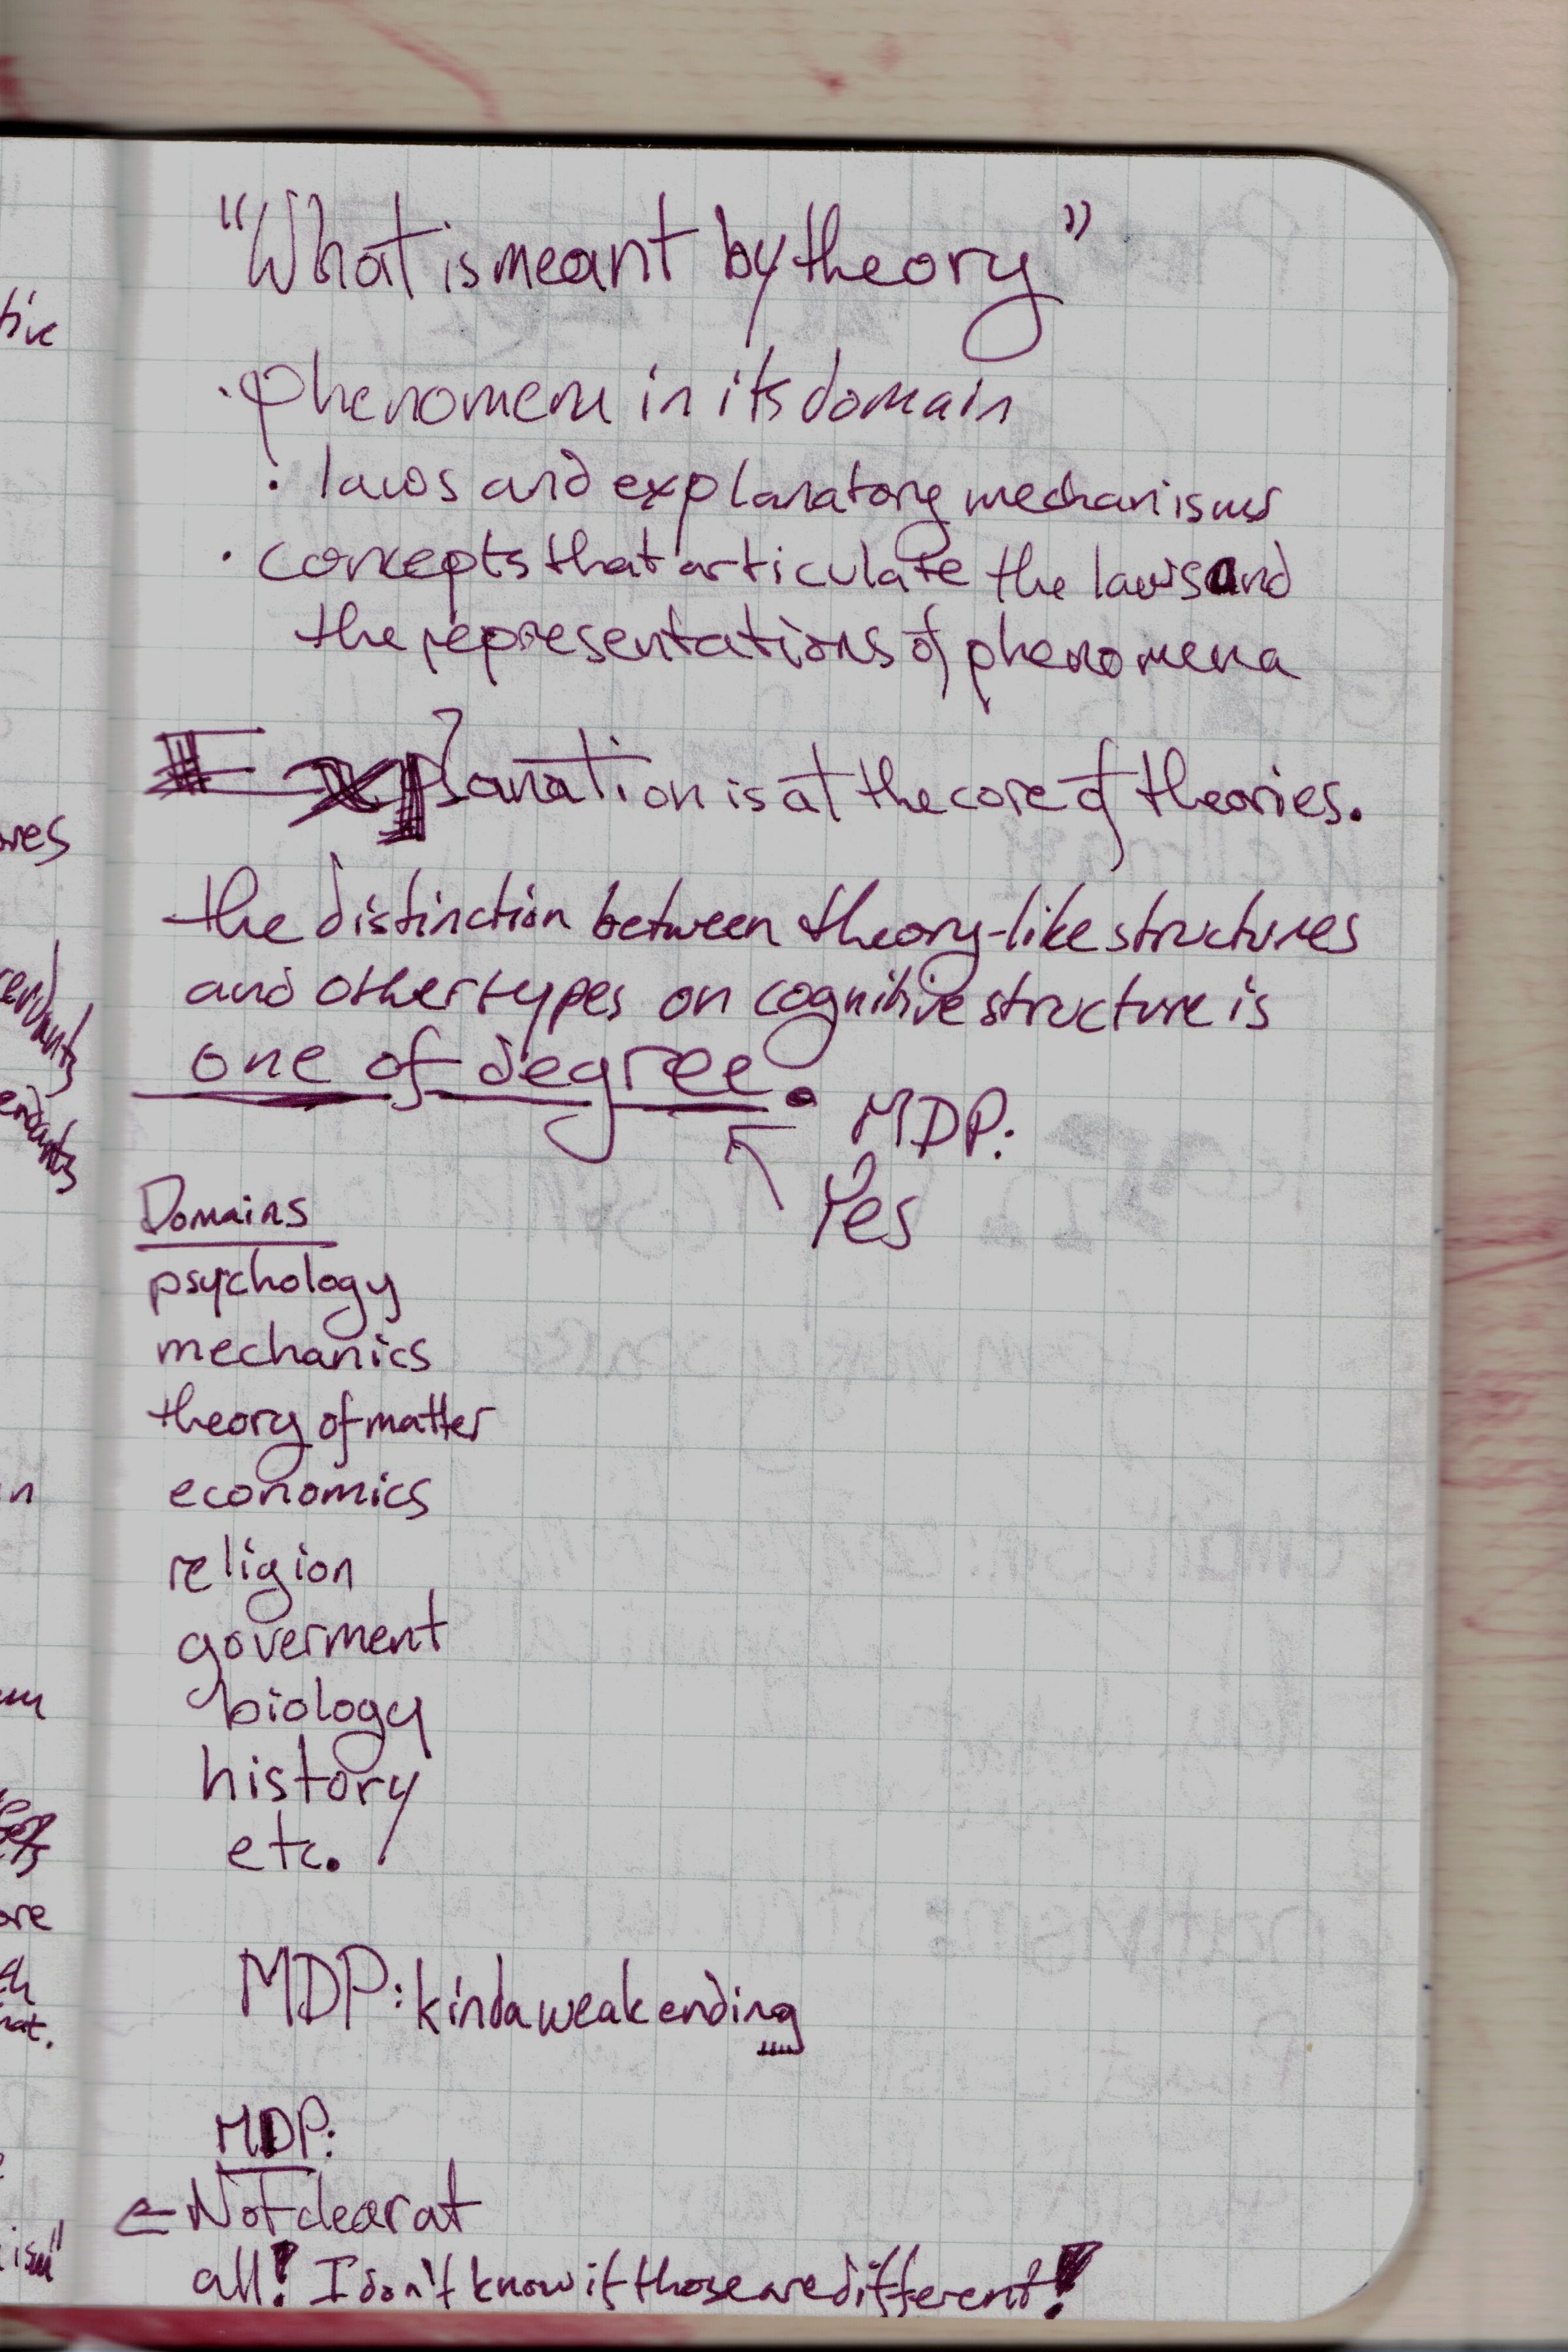 "What is meant by theory"
· phenomena in its domain
· laws and explanatory mechanisms
· concepts that articulate the laws and
the representations of phenomena
Explanation is at the core of theories.
the distinction between theory-like structures
and other types on cognitive structure is
one of degree.
MDP:
Yes
Domains
psychology
mechanics
theory of matter
economics
religion
goverment
biology
history
etc.
MDP: kinda weak ending
MDP:
← Not clear at
all! I don't know if those are different!